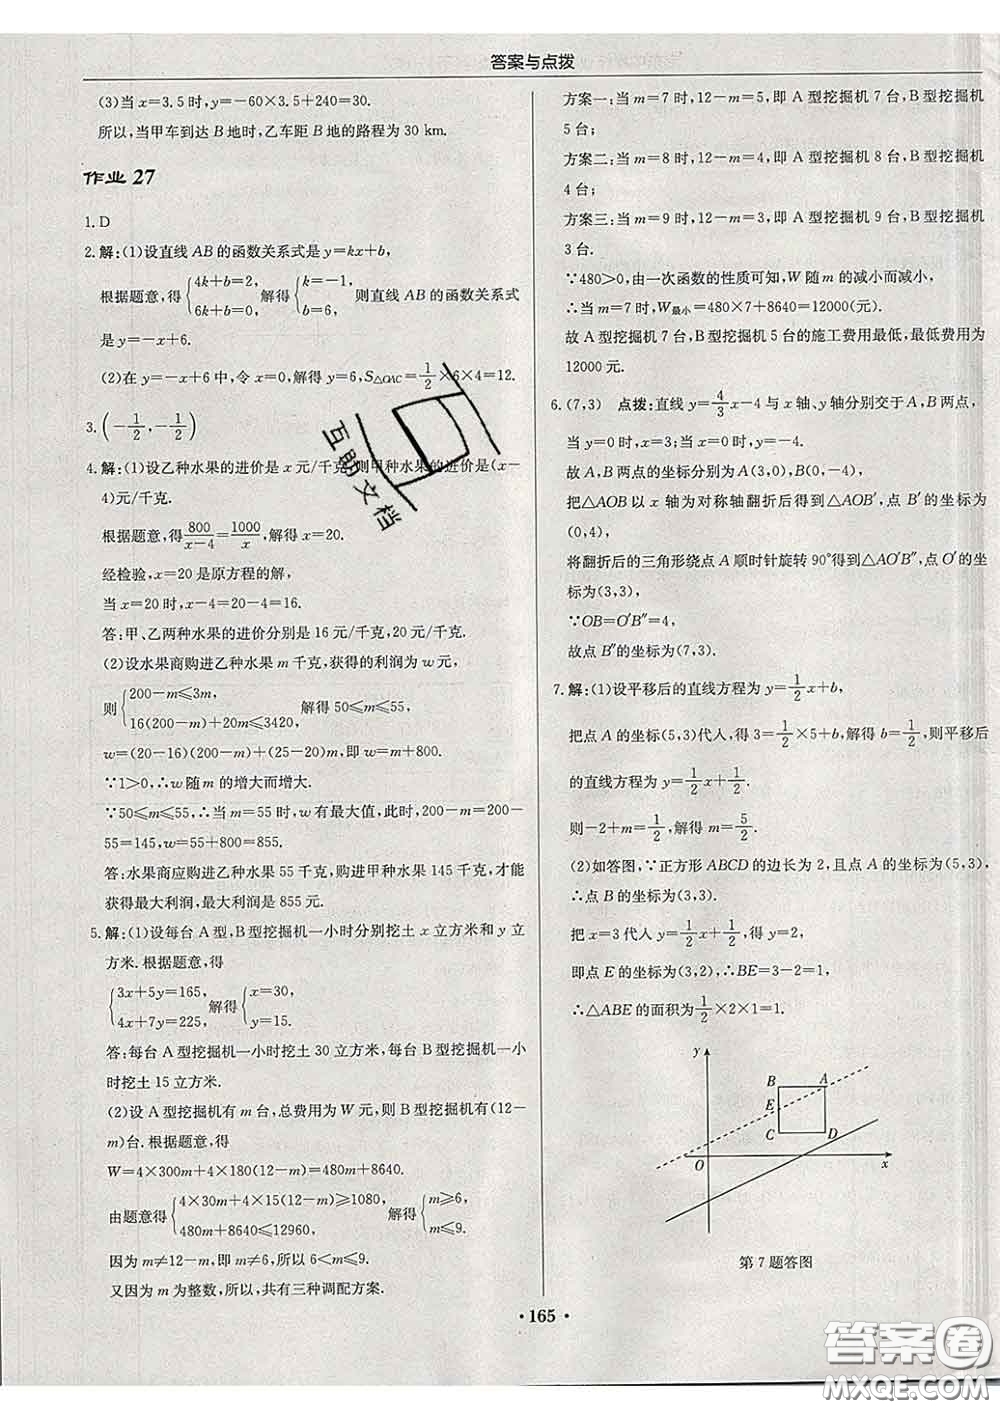 答案与点拨
(3)当 x=3.5 时,y=-60×3.5+240=30.
所以,当甲车到达 B 地时,乙车距 B 地的路程为 30 km.
作业 27
1. D
2. 解:(1)设直线 AB 的函数关系式是 y=kx+b,
根据题意,得{4k+b=2, 6k+b=0, 解得{k=-1, b=6, 则直线 AB 的函数关系式
是 y=-x+6.
(2)在 y=-x+6 中,令 x=0,解得 y=6,S△OAC=1/2×6×4=12.
3. (-1/2,-1/2)
4. 解:(1)设乙种水果的进价是 x 元/千克,则甲种水果的进价是(x-
4)元/千克.
根据题意,得800/(x-4)=1000/x,解得 x=20.
经检验,x=20 是原方程的解,
当 x=20 时,x-4=20-4=16.
答:甲、乙两种水果的进价分别是 16 元/千克,20 元/千克.
(2)设水果商购进乙种水果 m 千克,获得的利润为 w 元,
则{200-m≤3m, 16(200-m)+20m≤3420, 解得 50≤m≤55,
w=(20-16)(200-m)+(25-20)m,即 w=m+800.
∵1>0,∴w 随 m 的增大而增大.
∵50≤m≤55,∴当 m=55 时,w 有最大值,此时,200-m=200-
55=145,w=55+800=855.
答:水果商应购进乙种水果 55 千克,购进甲种水果 145 千克,才能
获得最大利润,最大利润是 855 元.
5. 解:(1)设每台 A 型,B 型挖掘机一小时分别挖土 x 立方米和 y 立
方米.根据题意,得
{3x+5y=165, 4x+7y=225, 解得{x=30, y=15.
答:每台 A 型挖掘机一小时挖土 30 立方米,每台 B 型挖掘机一小
时挖土 15 立方米.
(2)设 A 型挖掘机有 m 台,总费用为 W 元,则 B 型挖掘机有(12-
m)台.根据题意,得
W=4×300m+4×180(12-m)=480m+8640.
由题意得{4×30m+4×15(12-m)≥1080, 480m+8640≤12960, 解得{m≥6, m≤9.
因为 m≠12-m,即 m≠6,所以 6<m≤9.
又因为 m 为整数,所以,共有三种调配方案.
方案一:当 m=7 时,12-m=5,即 A 型挖掘机 7 台,B 型挖掘机
5 台;
方案二:当 m=8 时,12-m=4,即 A 型挖掘机 8 台,B 型挖掘机
4 台;
方案三:当 m=9 时,12-m=3,即 A 型挖掘机 9 台,B 型挖掘机
3 台.
∵480>0,由一次函数的性质可知,W 随 m 的减小而减小,
∴当 m=7 时,W最小=480×7+8640=12000(元).
故 A 型挖掘机 7 台,B 型挖掘机 5 台的施工费用最低,最低费用为
12000 元.
6. (7,3) 点拨:直线 y=4/3x-4 与 x 轴、y 轴分别交于 A,B 两点,
当 y=0 时,x=3,当 x=0 时,y=-4.
故 A,B 两点的坐标分别为 A(3,0),B(0,-4),
把△AOB 以 x 轴为对称轴翻折后得到△AOB′,点 B′的坐标为
(0,4),
将翻折后的三角形绕点 A 顺时针旋转 90°得到△AO′B″,点 O′的坐
标为(3,3),
∵OB=O′B″=4,
故点 B″的坐标为(7,3).
7. 解:(1)设平移后的直线方程为 y=1/2x+b,
把点 A 的坐标(5,3)代人,得 3=1/2×5+b,解得 b=1/2,则平移后
的直线方程为 y=1/2x+1/2.
则-2+m=1/2,解得 m=5/2.
(2)如答图,∵正方形 ABCD 的边长为 2,且点 A 的坐标为(5,3),
∴点 B 的坐标为(3,3).
把 x=3 代人 y=1/2x+1/2,得 y=2,
即点 E 的坐标为(3,2),∴BE=3-2=1,
∴△ABE 的面积为1/2×2×1=1.
y
B A
E
C D
O x
第 7 题答图
· 165 ·
互助文档
答案圈
MXQE.COM